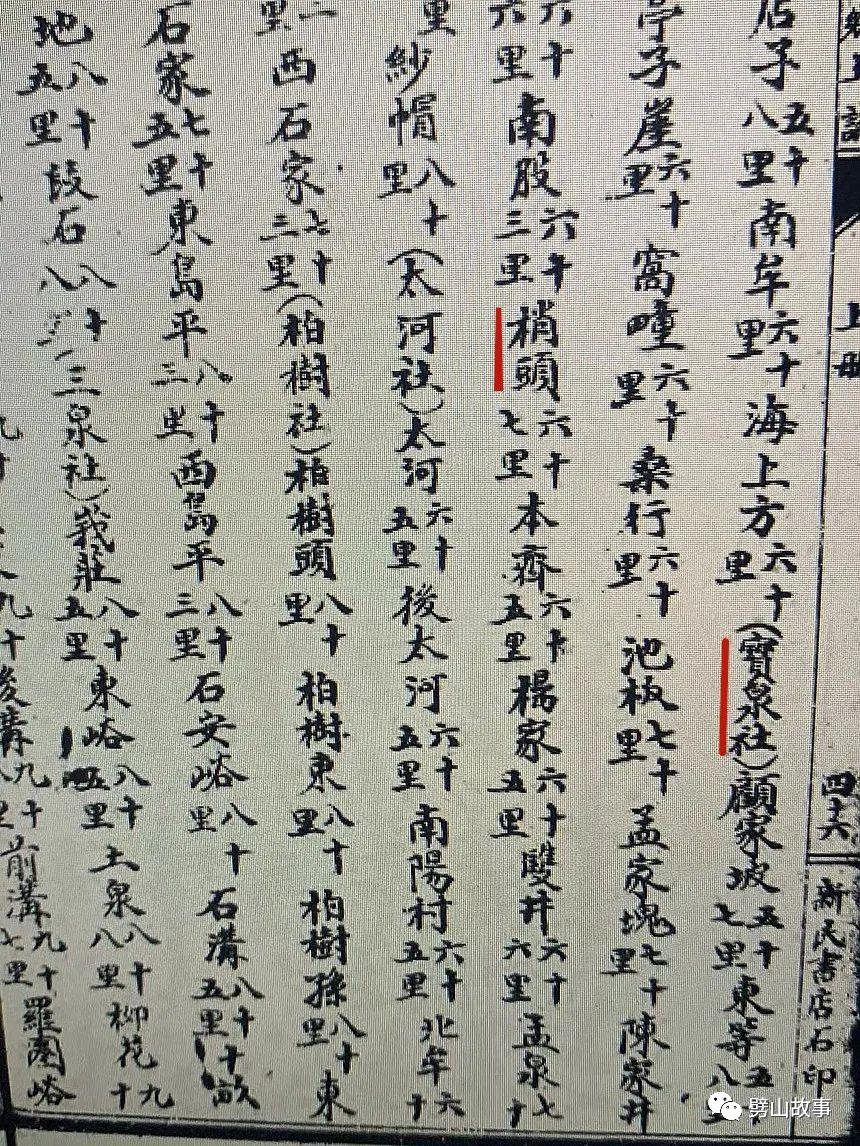 上册 四十六 新民書店石印
店子五十八里南牟六十里海上方六十里(寶泉社)顧家坡五十七里東等五十八
亭子崖六十里窩疃六十里桑行六十里池板七十里孟家塊七十里陳家井
六十六里南股六十三里梢頭六十七里本齊六十五里楊家六十五里雙井六十六里孟泉七十
里紗帽八十里(太河社)太河六十五里後太河六十五里南陽村六十五里北牟六十
二里西石家七十三里(柏樹社)柏樹頭八十里柏樹東八十里柏樹孫八十里東
石家七十五里東島平八十三里西島平八十三里石安峪八十里石溝八十五里十畝
地八十五里段石八十八三泉社)莪莊八十五里東峪八十五里土泉八十八里柳花九十
九十後溝九十里前溝九十七里羅圈峪
劈山故事